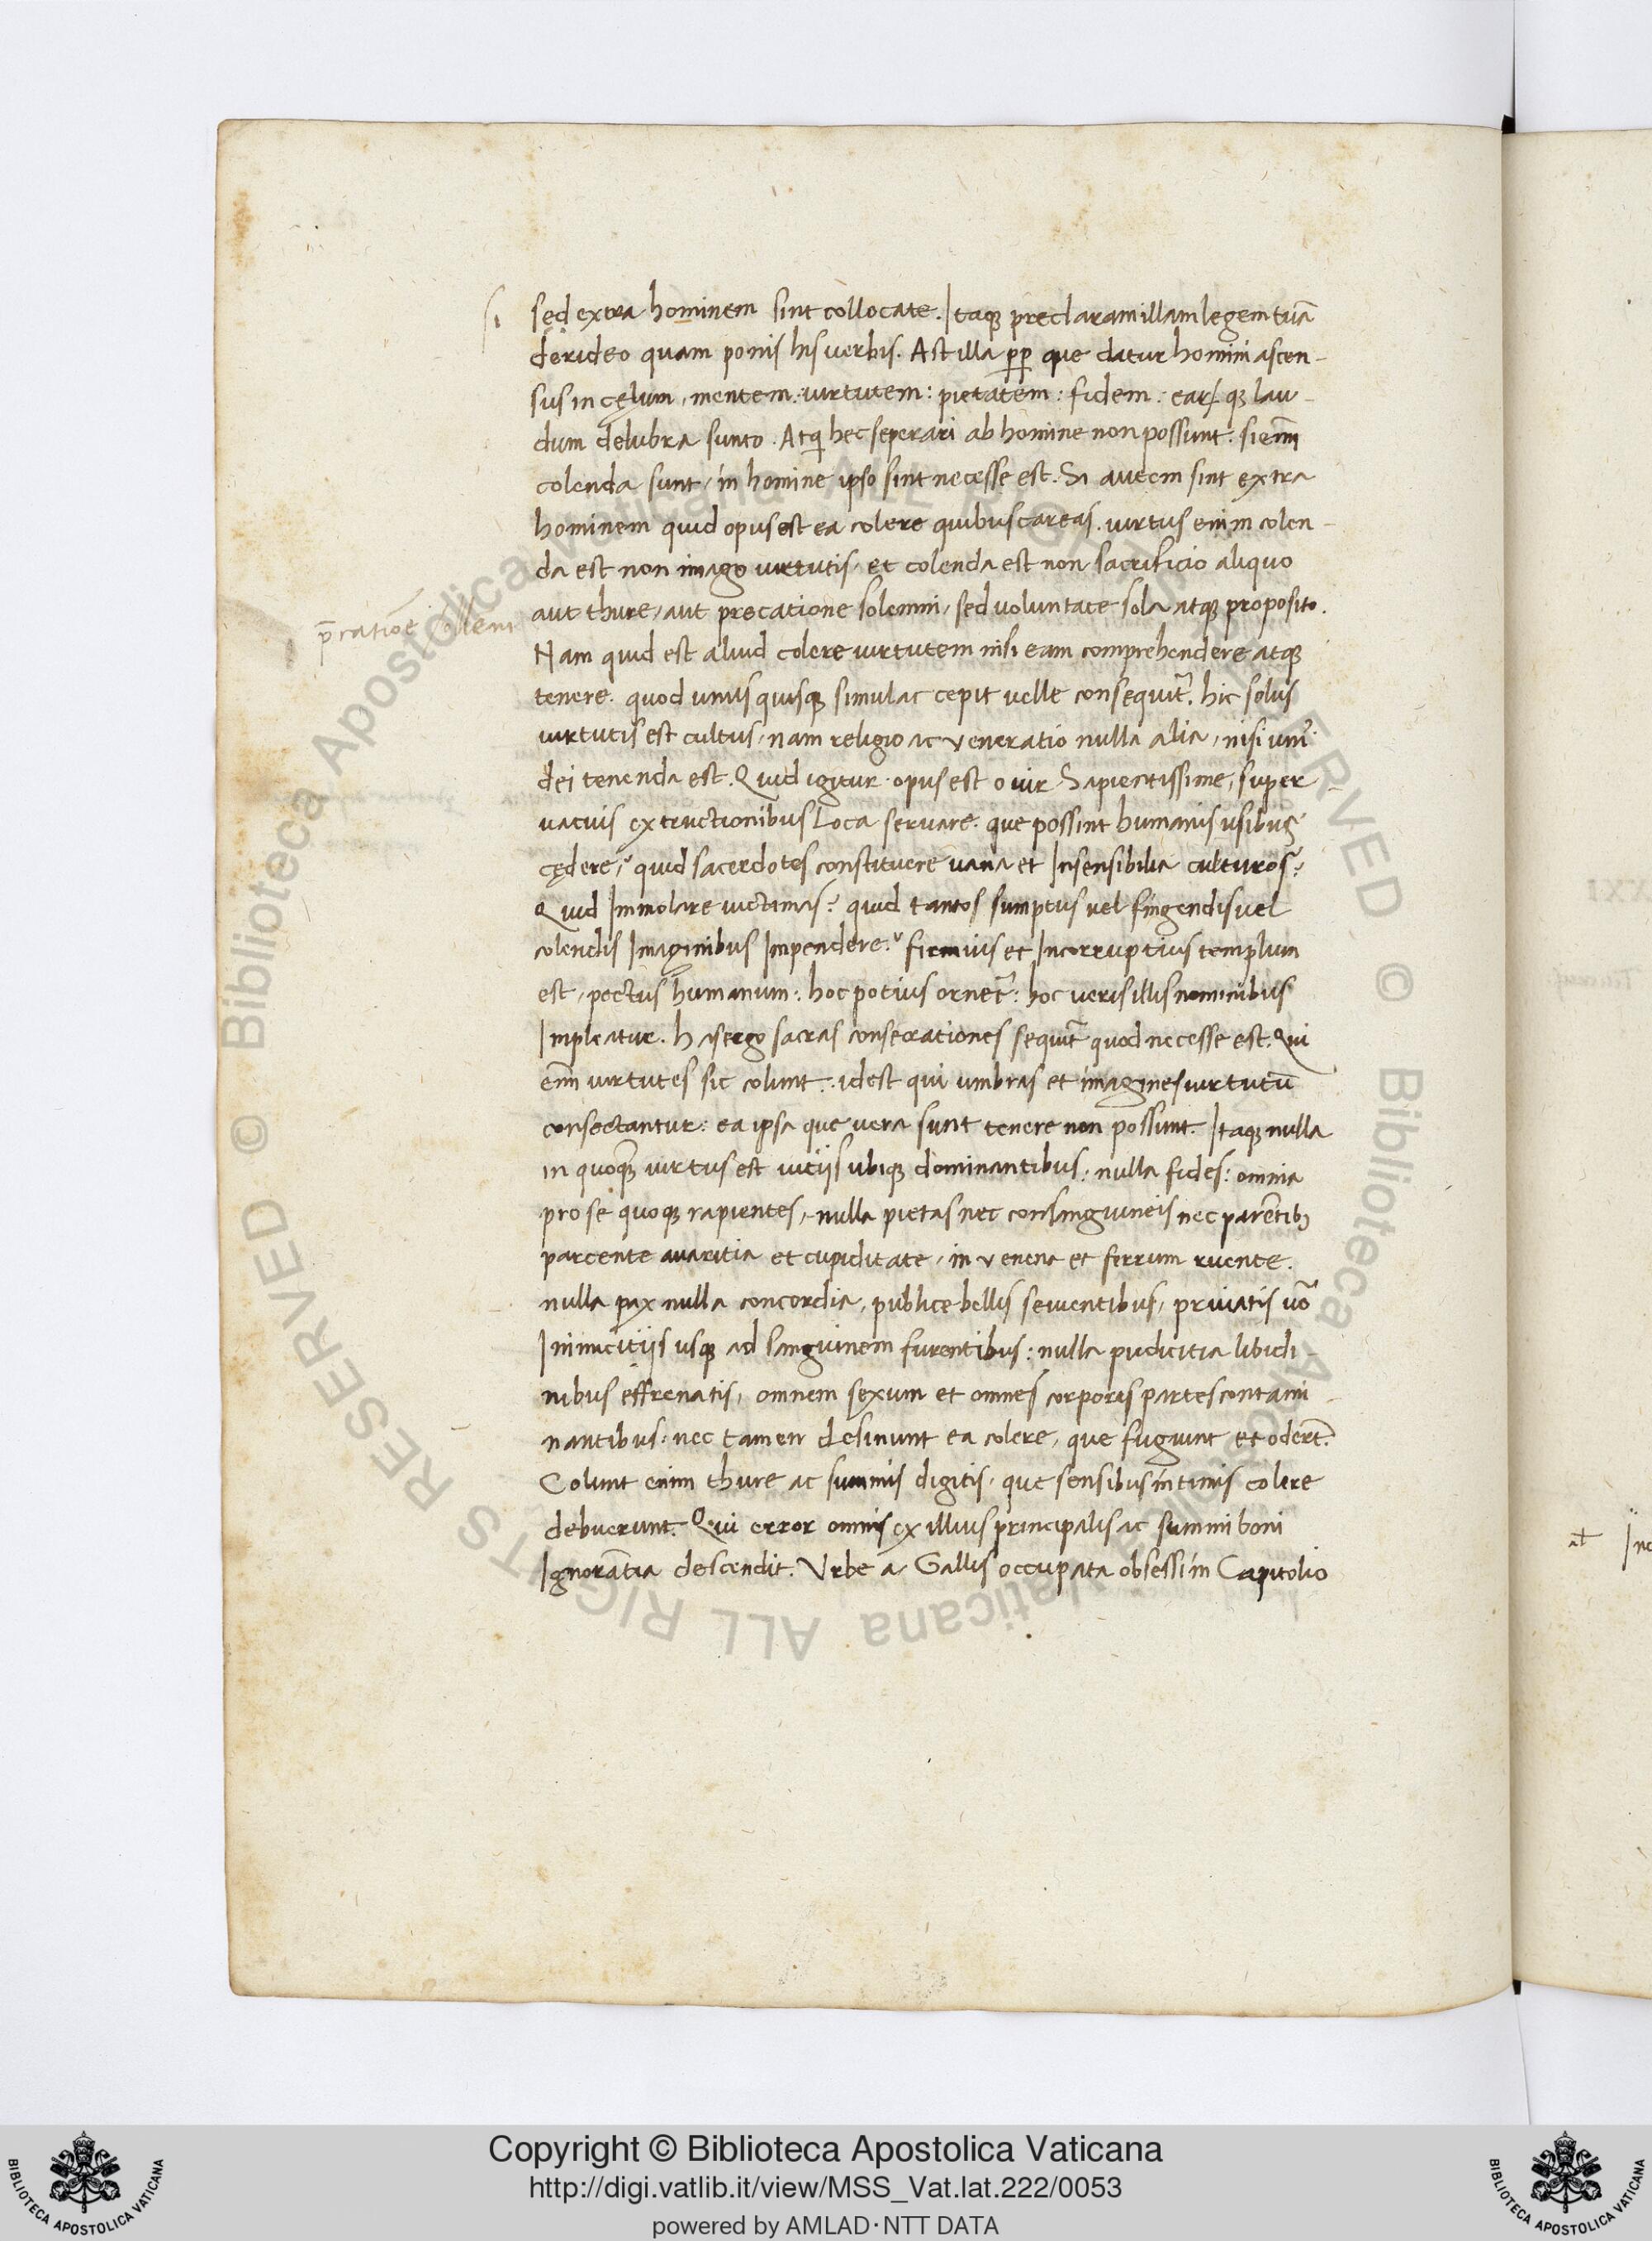 si
sed extra hominem sint collocate. Itaq; preclaram illam legem tuā
derideo quam ponis his verbis. Ast illa p̱p̱ que datur homini ascen-
sus in cęlum, mentem: uirtutem: pietatem: fidem: earꝝ q; lau-
dum delubra sunto. Atq̇ hec seperari ab homine non possunt: si enim̄
colenda sunt, in homine ipso sint necesse est. Si autem sint extra
hominem quid opus est ea colere quibus careas. uirtus enim colen-
da est non imago uirtutis, et colenda est non sacrificio aliquo
aut thure, aut precatione solemni, sed uoluntate sola atq; proposito.
p̄catiōe sollemni
Nam quid est aliud colere uirtutem nisi eam comprehendere atq;
tenere. quod unus quisq; simul ac cepit uelle consequit̄. hic solus
uirtutis est cultus, nam religio ac veneratio nulla alia, nisi uni'
dei tenenda est. Quid igitur opus est o uir Sapientissime, super
uacuis extructionibus Loca servare. que possint humanis usibus
cędere,? quid sacerdotes constituere uana et Insensibilia culturos?
Quid Immolare uictimas? quid tantos sumptus uel fingendis uel
colendis Imaginibus Impendere? firmius et Incorruptius templum
est, pectus humanum: hoc potius ornet̄: hoc ueris illis nominibus
Impleatur. Has ergo sacras consecrationes sequit̄ quod necesse est. Qui
enī uirtutes sic colunt: idest qui umbras et imagines uirtutū
consectantur: ea ipsa que vera sunt tenere non possunt. Itaq; nulla
in quoq̄ uirtus est uitijs ubiq; dominantibus: nulla fides: omnia
pro se quoq; rapientes, nulla pietas nec consanguineis nec parētib;
parcente auaritia et cupiditate, in venena et ferrum ruente.
nulla pax nulla concordia, publice bellis seuientibus, priuatis uō
Inimicitijs usq; ad sanguinem furentibus: nulla pudicitia libidi-
nibus effrenatis, omnem sexum et omnes corporis partes contami-
nantibus: nec tamen desinunt ea colere, que fugiunt et odert̄.
Colunt enim thure ac summis digitis, que sensibus intimis colere
debuerunt. Qui error omnis ex illius principalis ac summi boni
Ignorātia descendit. Vrbe a Gallis occupata obsessi in Capitolio
Copyright © Biblioteca Apostolica Vaticana
http://digi.vatlib.it/view/MSS_Vat.lat.222/0053
powered by AMLAD·NTT DATA
BIBLIOTECA APOSTOLICA VATICANA
BIBLIOTECA APOSTOLICA VATICANA
© Biblioteca Apostolica Vaticana ALL RIGHTS RESERVED © Biblioteca Apostolica Vaticana ALL RIGHTS RESERVED